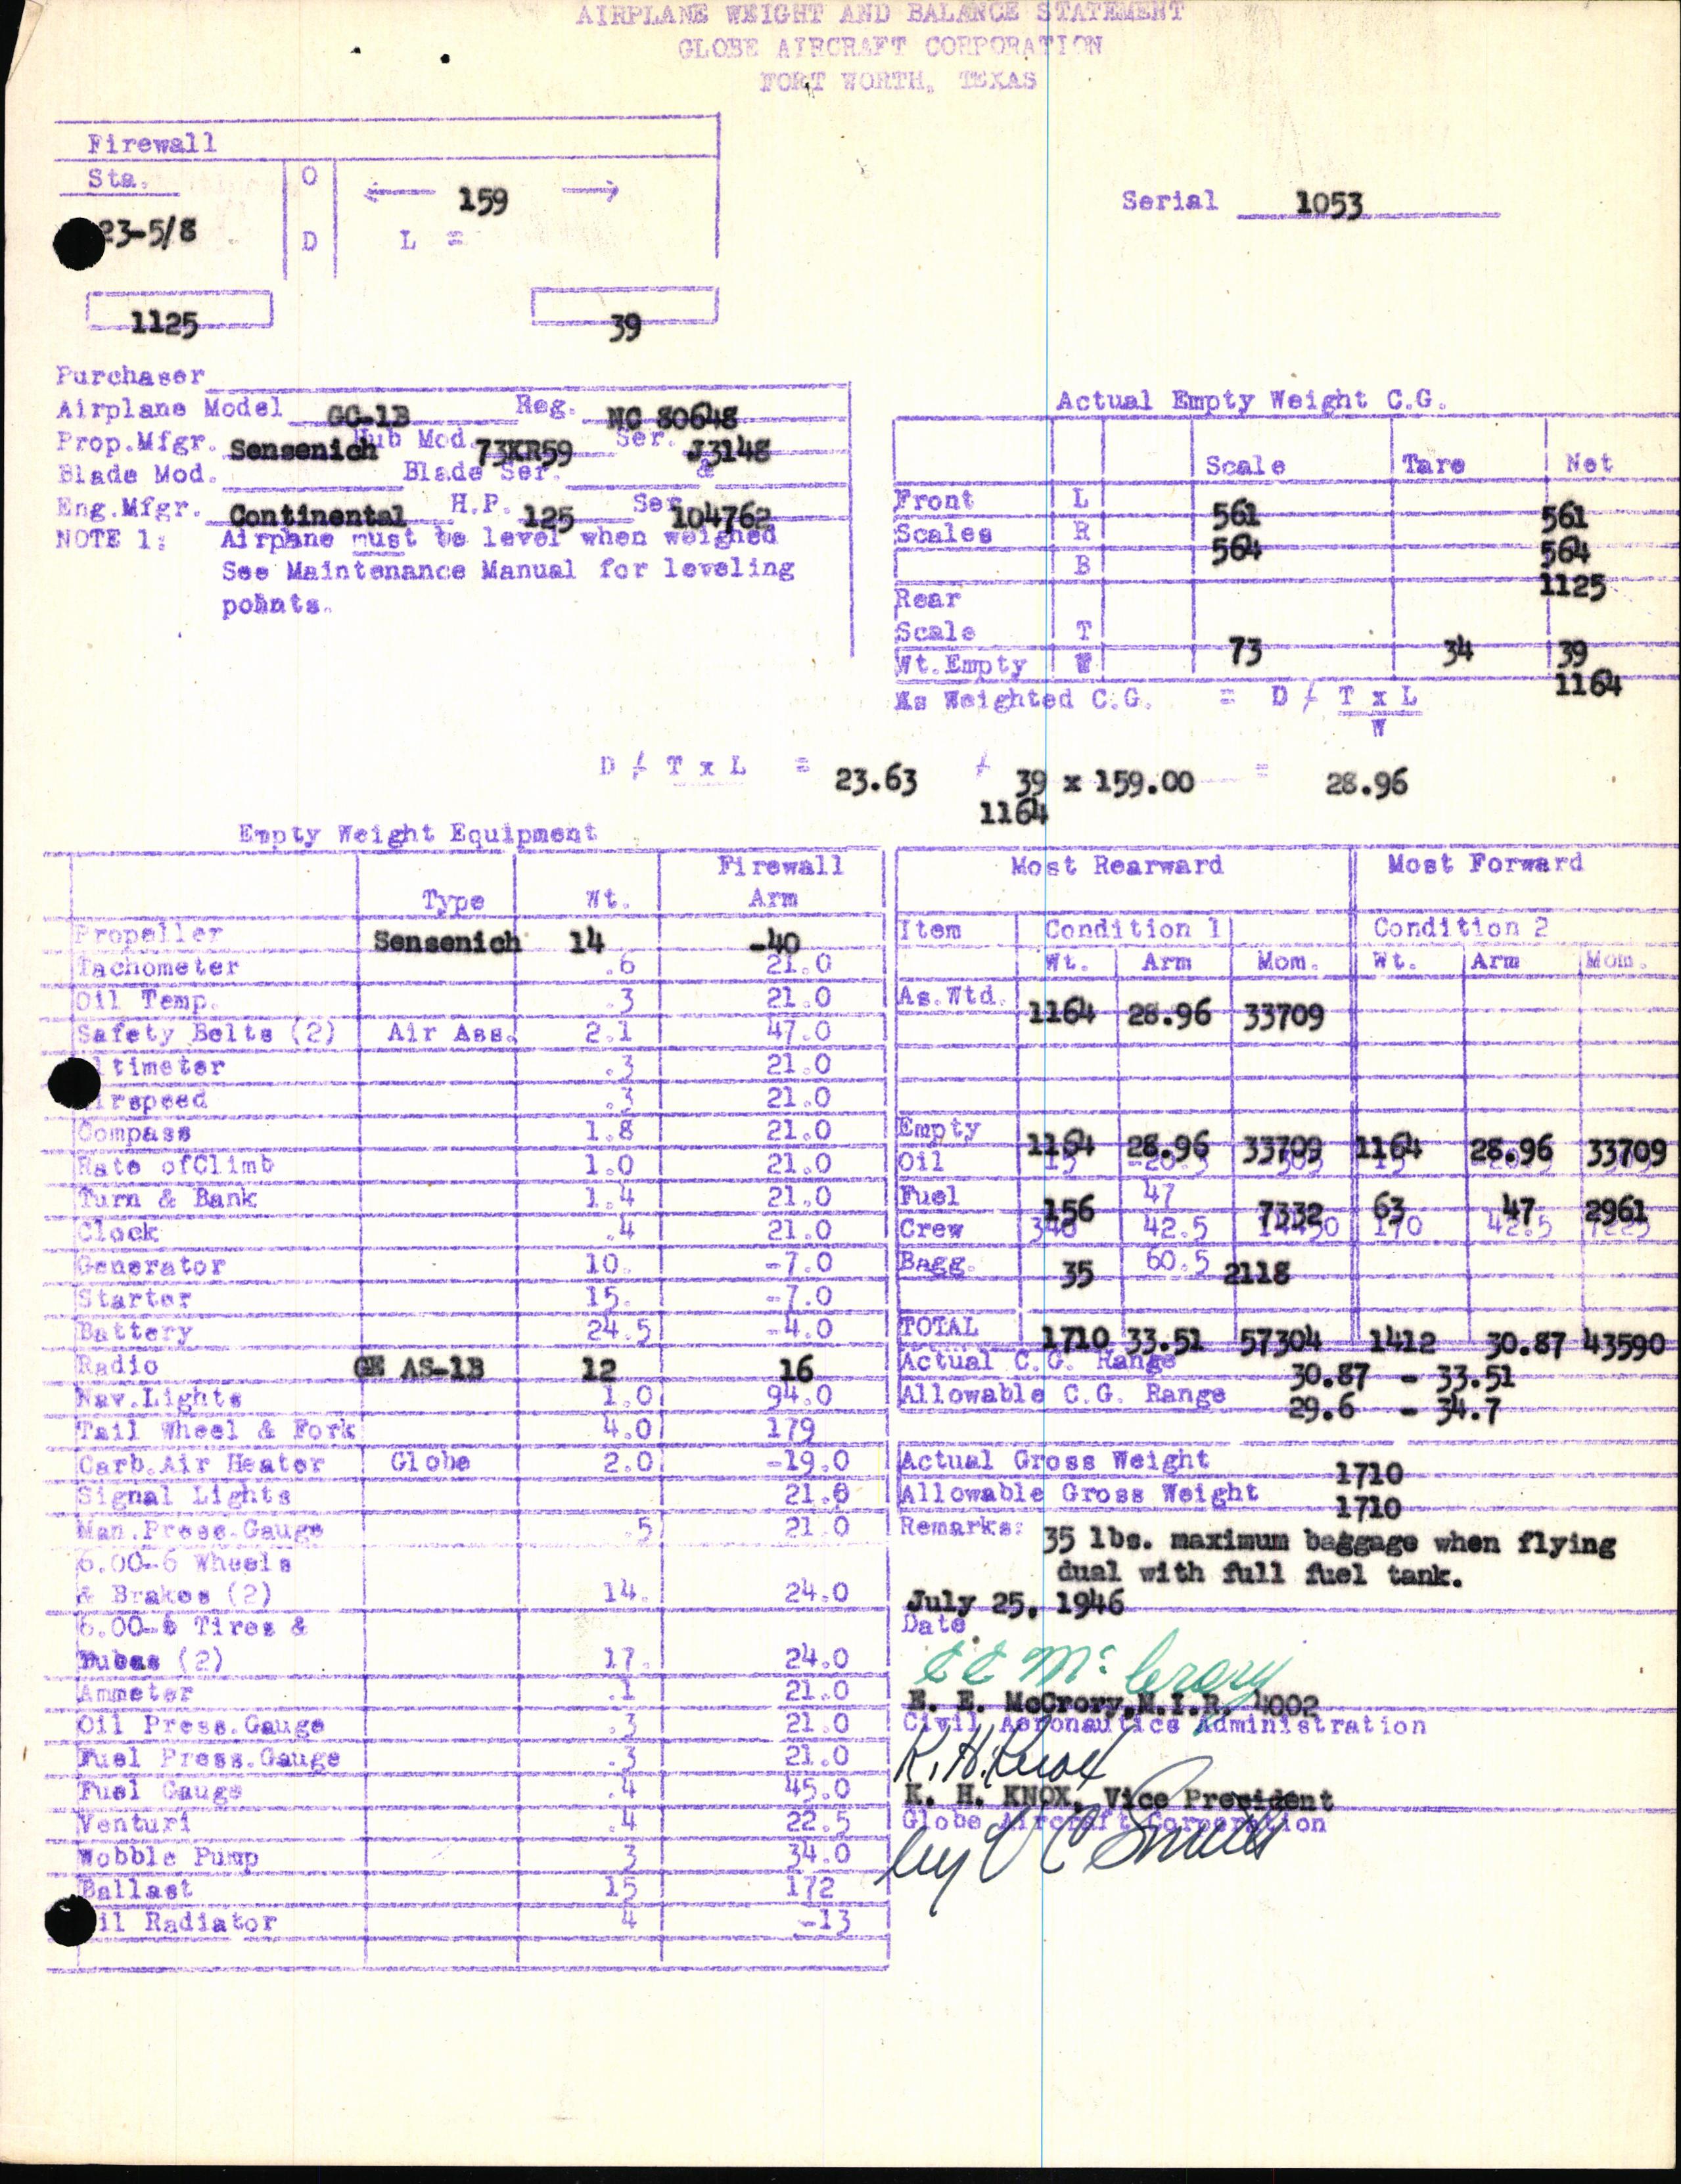 AIRPLANE WEIGHT AND BALANCE STATEMENT
GLOBE AIRCRAFT CORPORATION
FORT WORTH, TEXAS
Firewall
Sta. O ← 159 →
23-5/8 D L =
Serial 1053
1125 39
Purchaser
Airplane Model GC-1B Reg. NC 80648
Prop.Mfgr. Sensenich Hub Mod. 73KR59 Ser. J3148
Blade Mod. Blade Ser. &
Eng.Mfgr. Continental H.P. 125 Ser 104762
NOTE 1: Airplane must be level when weighed
See Maintenance Manual for leveling
points.
Actual Empty Weight C.G.
Scale Tare Net
Front L 561 561
Scales R 564 564
B 1125
Rear
Scale T 73 34 39
Wt.Empty W 1164
As Weighted C.G. = D + T x L
W
D + T x L = 23.63 + 39 x 159.00 = 28.96
1164
Empty Weight Equipment
Type Wt. Firewall Arm
Propeller Sensenich 14 -40
Tachometer .6 21.0
Oil Temp. .3 21.0
Safety Belts (2) Air Ass. 2.1 47.0
ltimeter .3 21.0
irspeed .3 21.0
Compass 1.8 21.0
Rate ofClimb 1.0 21.0
Turn & Bank 1.4 21.0
Clock .4 21.0
Generator 10. -7.0
Starter 15. -7.0
Battery 24.5 -4.0
Radio GE AS-1B 12 16
Nav.Lights 1.0 94.0
Tail Wheel & Fork 4.0 179
Carb.Air Heater Globe 2.0 -19.0
Signal Lights 21.0
Man.Press.Gauge .5 21.0
6.00-6 Wheels
& Brakes (2) 14. 24.0
6.00-6 Tires &
Tubes (2) 17. 24.0
Ammeter .1 21.0
Oil Press.Gauge .3 21.0
Fuel Press.Gauge .3 21.0
Fuel Gauge .4 45.0
Venturi .4 22.5
Wobble Pump 3 34.0
Ballast 15 172
il Radiator 4 -13
Most Rearward Most Forward
Item Condition 1 Condition 2
Wt. Arm Mom. Wt. Arm Mom.
As.Wtd. 1164 28.96 33709
Empty 1164 28.96 33709 1164 28.96 33709
Oil 15 15
Fuel 156 47 7332 63 47 2961
Crew 340 42.5 14450 170 42.5 7225
Bagg. 35 60.5 2118
TOTAL 1710 33.51 57304 1412 30.87 43590
Actual C.G. Range 30.87 - 33.51
Allowable C.G. Range 29.6 - 34.7
Actual Gross Weight 1710
Allowable Gross Weight 1710
Remarks: 35 lbs. maximum baggage when flying
dual with full fuel tank.
July 25, 1946
Date
E E McCrory
E. E. McCrory,M.I.R. 4002
Civil Aeronautics Administration
K.H.Knox
K. H. KNOX, Vice President
Globe Aircraft Corporation
by